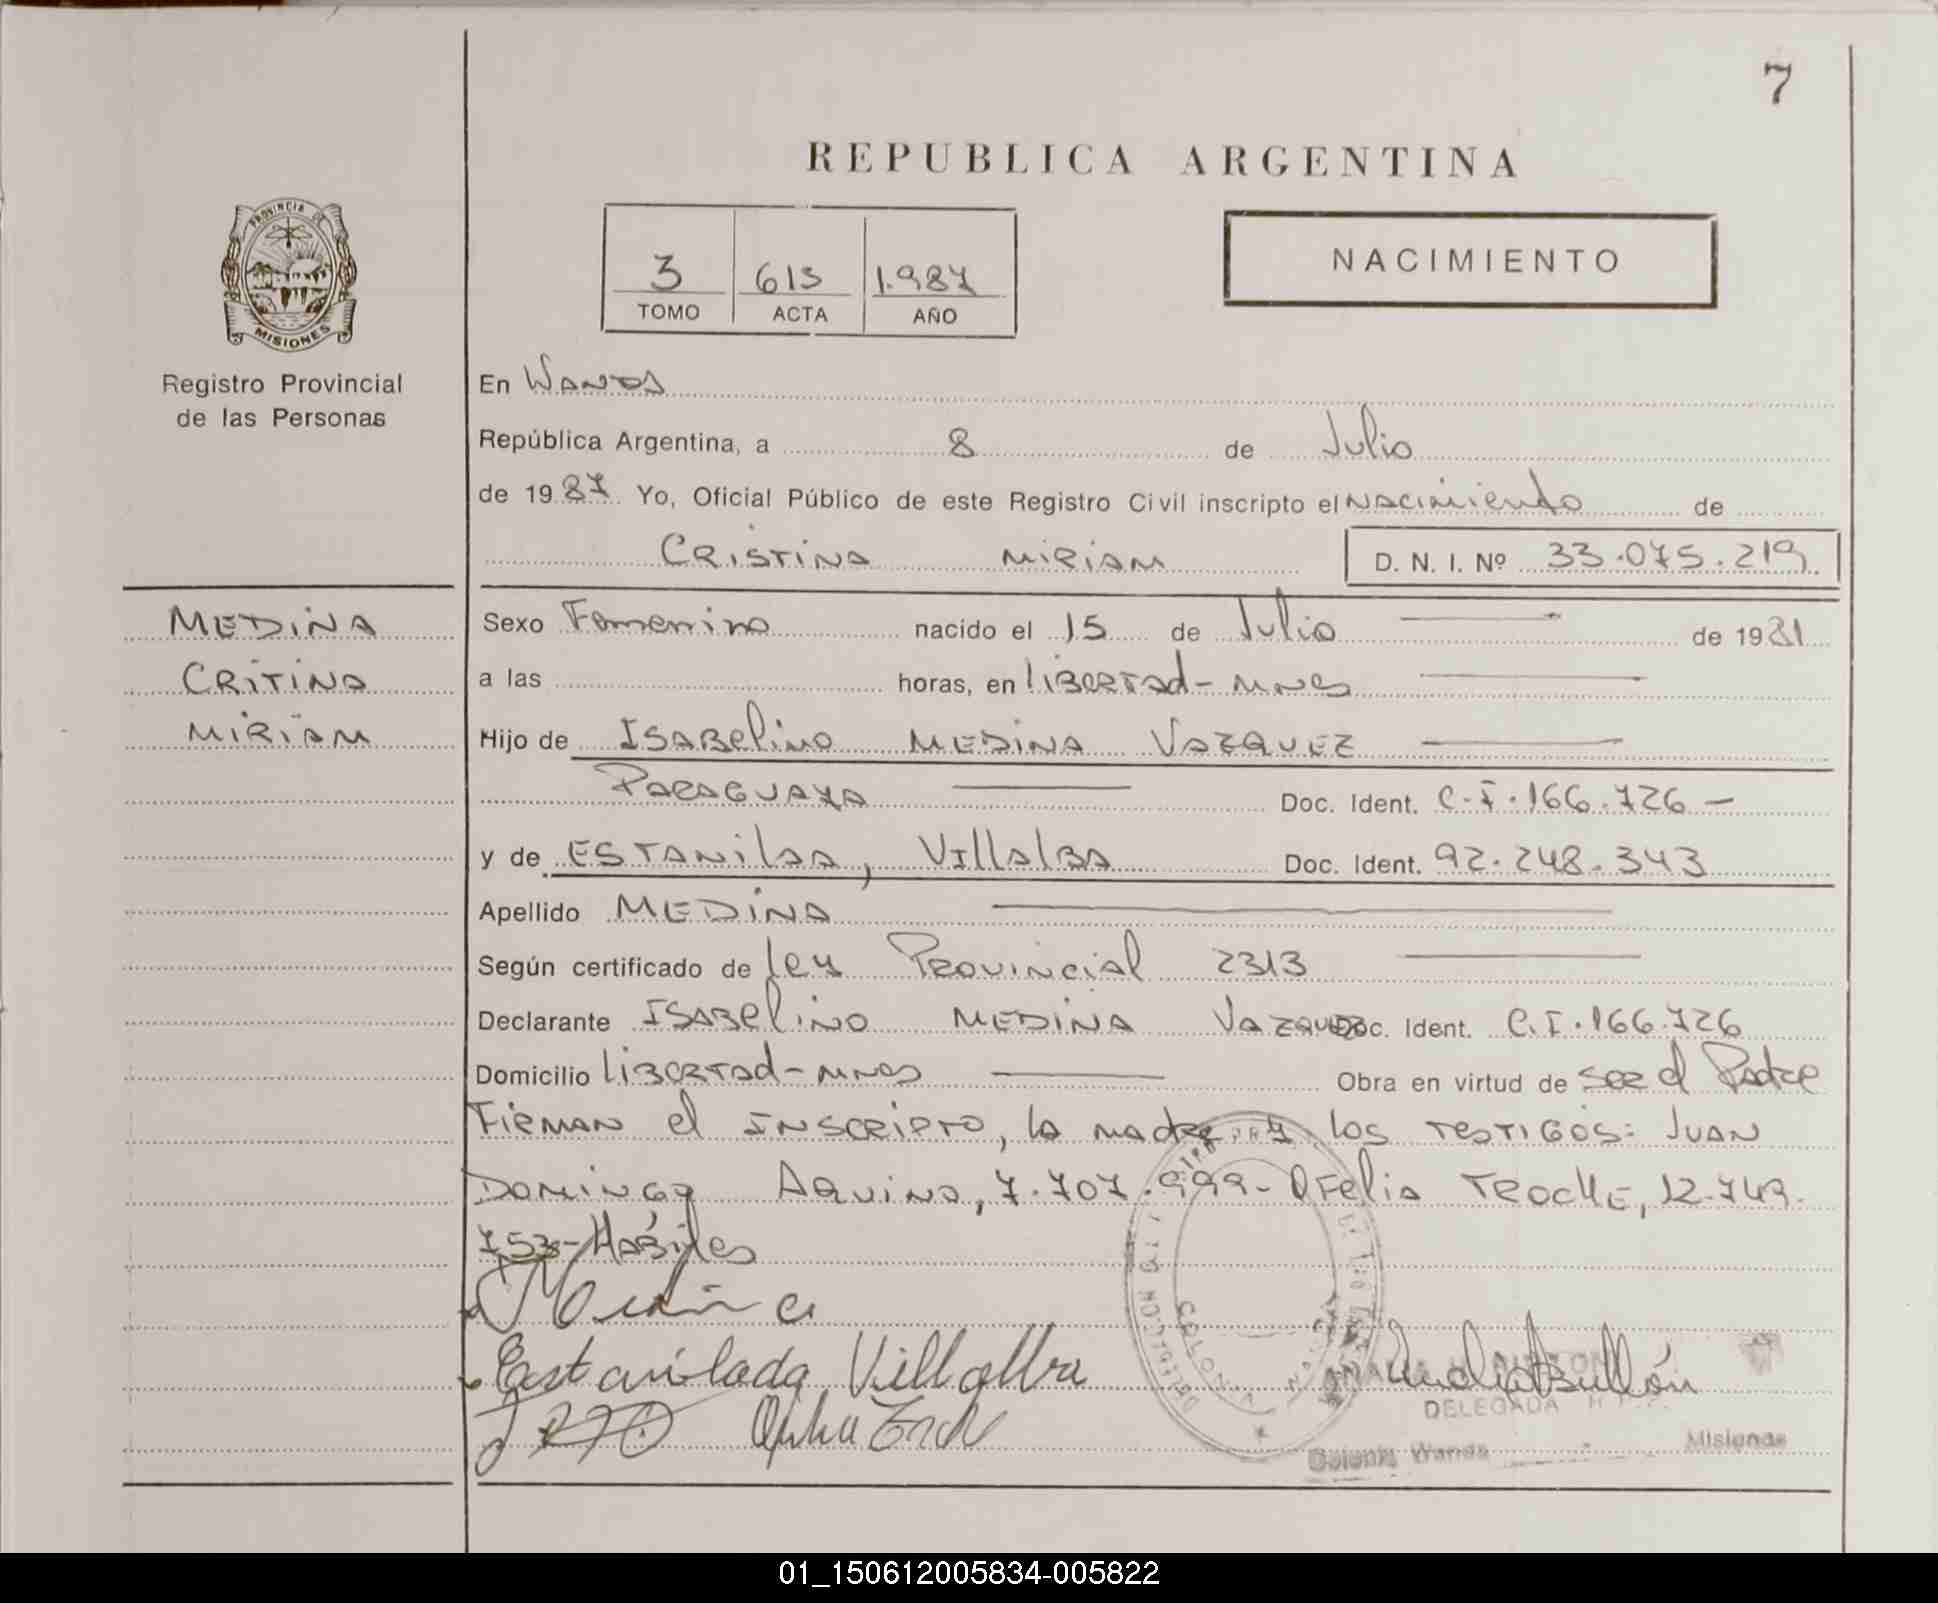 7
REPUBLICA ARGENTINA
PROVINCIA DE
MISIONES
Registro Provincial
de las Personas
3 613 1.987
TOMO ACTA AÑO
NACIMIENTO
En Wanda
República Argentina, a 8 de Julio
de 1987 Yo, Oficial Público de este Registro Civil inscripto el Nacimiento de
CRISTINA MIRIAM D. N. I. Nº 33.075.219
MEDINA
CRITINA
MIRIAM
Sexo Femenino nacido el 15 de Julio de 1981
a las horas, en Libertad - Mnes
Hijo de Isabelino MEDINA VAZQUEZ
PARAGUAYA Doc. Ident. C.I.166.726 -
y de ESTANILAA, Villalba Doc. Ident. 92.248.343
Apellido MEDINA
Según certificado de Ley Provincial 2313
Declarante Isabelino MEDINA Vazquez Doc. Ident. C.I.166.726
Domicilio Libertad - Mnes Obra en virtud de ser el Padre
Firman el inscripto, la madre y los testigos: Juan
Domingo Aquino, 7.707.999 - Ofelia Troche, 12.749.
753 - Hábiles
Medina
Estanilada Villalba
DELEGADA
Colonia Wanda Misiones
01_150612005834-005822